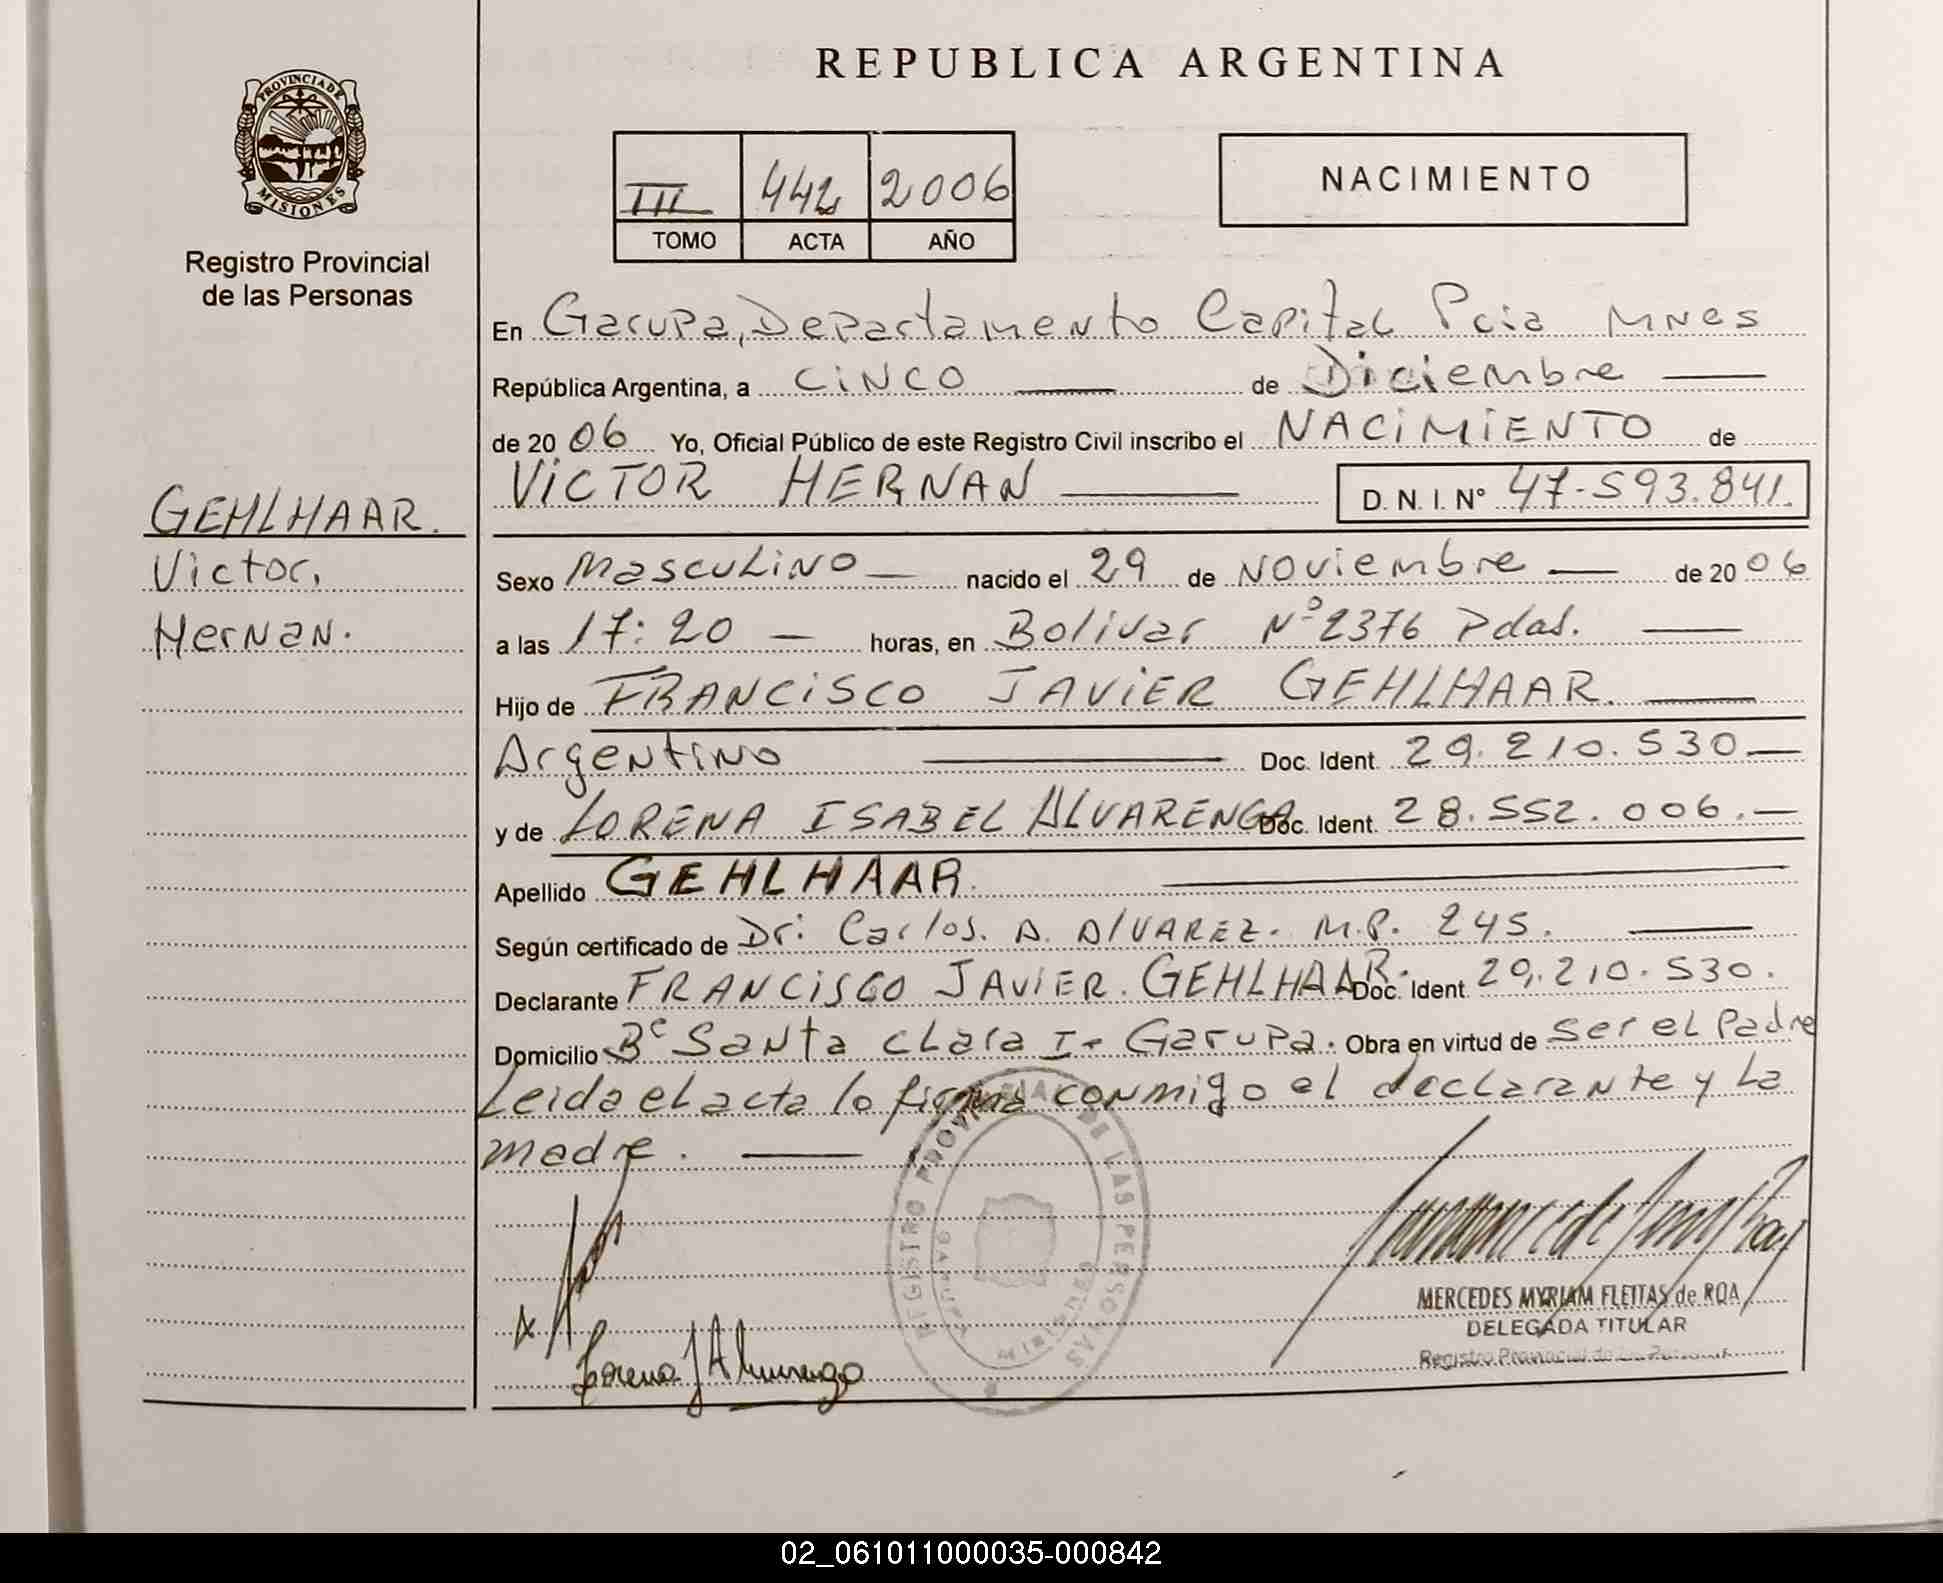 REPUBLICA ARGENTINA
PROVINCIA DE
MISIONES
Registro Provincial
de las Personas
III 442 2006
TOMO ACTA AÑO
NACIMIENTO
En Garupa, Departamento Capital Pcia Mnes
República Argentina, a CINCO de Diciembre
de 20 06 Yo, Oficial Público de este Registro Civil inscribo el NACIMIENTO de
VICTOR HERNAN D. N. I. N° 47-593.841.
GEHLHAAR.
Victor,
Hernan.
Sexo Masculino nacido el 29 de Noviembre de 20 06
a las 17:20 horas, en Bolivar N° 2376 Pdas.
Hijo de FRANCISCO JAVIER GEHLHAAR.
Argentino Doc. Ident. 29.210.530
y de LORENA ISABEL ALVARENGA Doc. Ident. 28.552.006.
Apellido GEHLHAAR.
Según certificado de Dr: Carlos. A. AlVAREZ. M.P. 245.
Declarante FRANCISCO JAVIER. GEHLHAAR. Doc. Ident 29.210.530.
Domicilio B° Santa Clara I- Garupa. Obra en virtud de Ser el Padre
Leida el acta lo firma conmigo el declarante y La
madre.
REGISTRO PROVINCIAL DE LAS PERSONAS
GARUPA
MISIONES
Lorena I Alvarenga
MERCEDES MYRIAM FLEITAS de ROA
DELEGADA TITULAR
Registro Provincial de las Personas
02_061011000035-000842